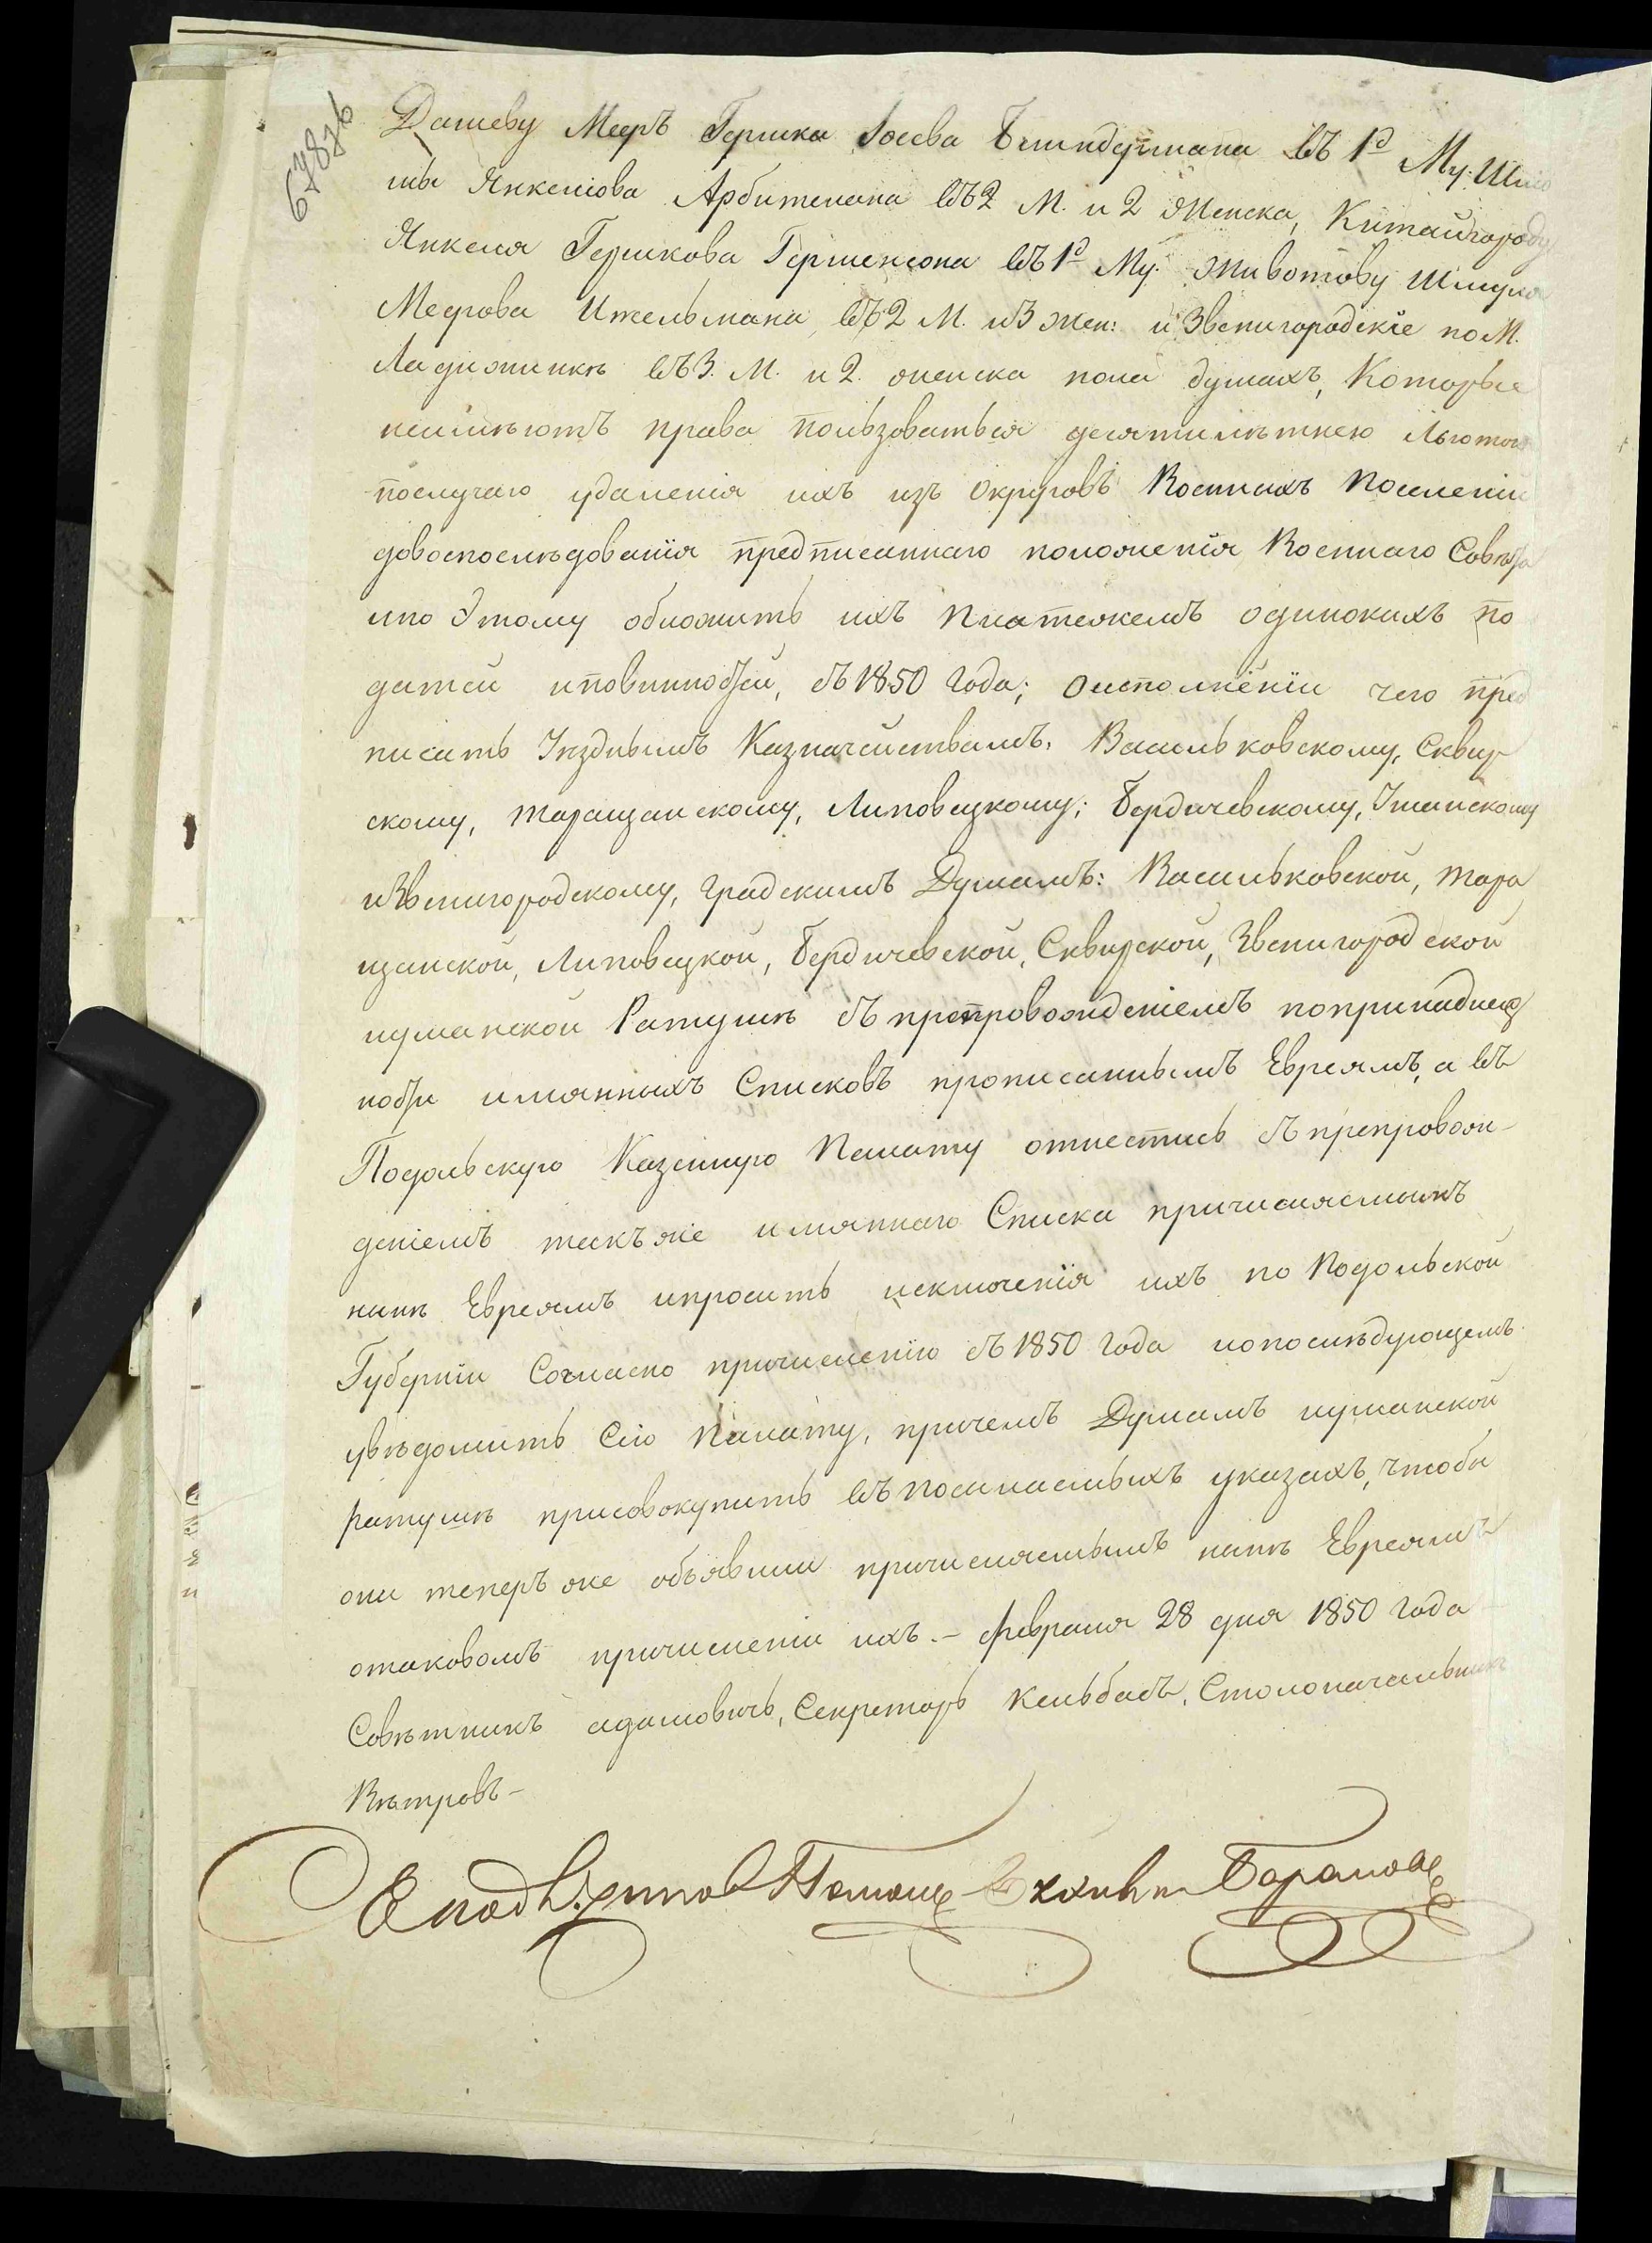 Дашеву Меерѣ Гершка Іосева Блиндермана въ 1<sup>й</sup> Му: Шліо
мы Янкеліова Арбитмана въ 2 М. и 2 женска, Китайгороду
Янкеля Гершкова Гершензона въ 1<sup>й</sup> Му. Животову Шмуля
Меерова Ительмана въ 2 М. и 3 жен: и Звенигородскіе по М.
Ладижинкѣ въ 3. М. и 2. женска пола душахъ, Которые
неимѣютъ права пользоваться десятилѣтнею Льготою
послучаю удаленія ихъ изъ округовъ Военныхъ Поселеній
довоспослѣдованія предписаннаго положенія Военнаго Совѣта
ипо Этому обложить ихъ Платежемъ одинокихъ по
датей иповинностей, съ 1850 года; оисполненіи чего пред
писать Уезднымъ Казначействамъ. Васильковскому, Сквир
скому, таращанскому, Липовецкому; Бердичевскому, Уманскому
иЗвенигородскому, градскимъ Думамъ: Васильковской, тара
щанской, Липовецкой, Бердичевской, Сквирской, Звенигородской
иуманской Ратушѣ съ препровожденіемъ попринадлеж
ности имянныхъ Списковъ прописаннымъ Евреямъ, а въ
Подольскую Казенную Палату отнестись съ препровож-
деніемъ такъ же имяннаго Списка причисляемымъ
нынѣ Евреямъ ипросить исключенія ихъ по Подольской
Губерніи Согласно причисленію съ 1850 года ипослѣдующемъ
увѣдомить Сію Палату, причемъ Думамъ иуманской
ратушѣ присовокупить въ посылаемыхъ указахъ, чтобы
они теперъ же объявили причисляемымъ нынѣ Евреямъ
отаковомъ причисленіи ихъ.- февраля 28 дня 1850 года
Совѣтникъ адамовичь, Секретарь Кельбасъ, Столоначальникъ
Вѣтровъ-